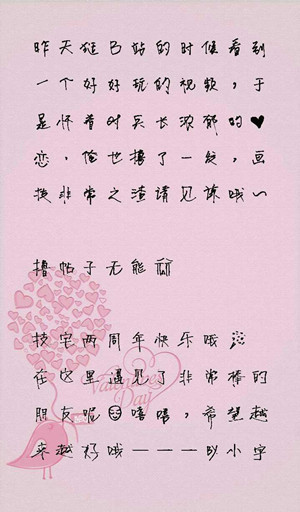 昨天逛B站的时候看到
一个好好玩的视频，于
是怀着对兵长浓郁的♥
恋，俺也撸了一发，画
技非常之渣请见谅哦～
撸帖子无能
技宅两周年快乐哦
在这里遇见了非常棒的
朋友呢 嘻嘻，希望越
来越好哦———以小字
Valentine's
Day